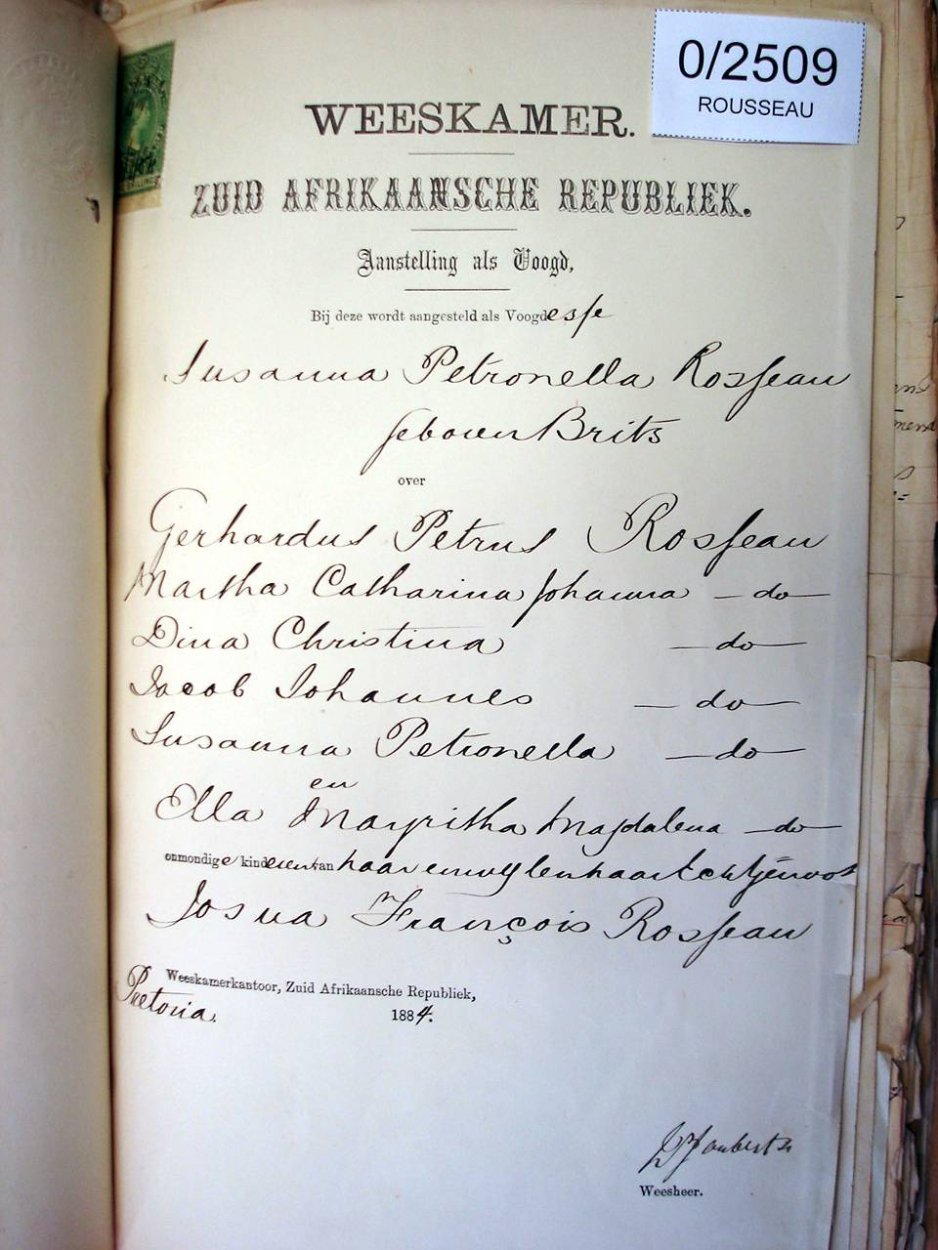 0/2509
ROUSSEAU
WEESKAMER.
ZUID AFRIKAANSCHE REPUBLIEK.
Aanstelling als Voogd,
Bij deze wordt aangesteld als Voogdesse
Susanna Petronella Rosseau
geboren Brits
over
Gerhardus Petrus Rosseau
Martha Catharina Johanna — do —
Dina Christina — do —
Jacob Johannes — do —
Susanna Petronella — do —
en
Ella Maygritha Magdalena — do —
onmondige kinderen van haar en wylen haar Echtgenoot
Josua François Rosseau
Weeskamerkantoor, Zuid Afrikaansche Republiek,
Pretoria. 1884.
Joubert
Weesheer.